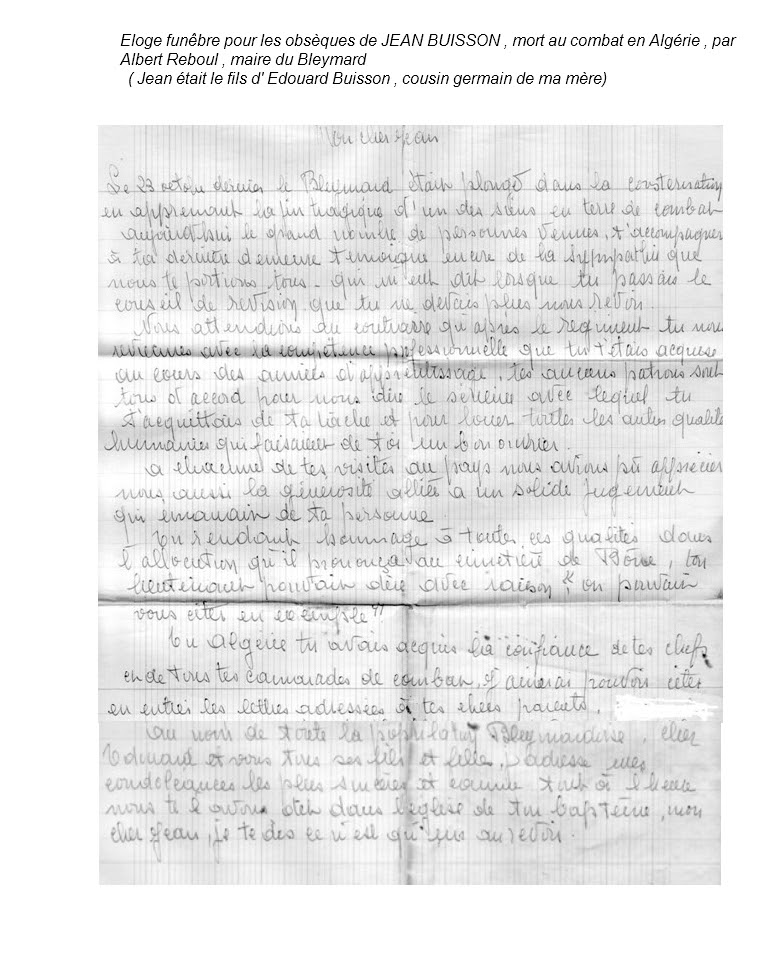 Eloge funêbre pour les obsèques de JEAN BUISSON , mort au combat en Algérie , par
Albert Reboul , maire du Bleymard
( Jean était le fils d' Edouard Buisson , cousin germain de ma mère)
Mon cher Jean
Le 23 octobre dernier le Bleymard était plongé dans la consternation
en apprenant la fin tragique d'un des siens en terre de combat
aujourd'hui le grand nombre de personnes venues, t'accompagner
à ta dernière demeure témoigne encore de la sympathie que
nous te portions tous. qui m'eut dit lorsque tu passais le
conseil de revision que tu ne devais plus nous revoir.
Nous attendions du contraire qu'après le régiment tu nous
reviennes avec la compétence professionnelle que tu t'étais acquise
au cours des années d'apprentissage, tes anciens patrons sont
tous d'accord pour nous dire le sérieux avec lequel tu
t'acquittais de ta tâche et pour louer toutes les autres qualités
humaines qui faisaient de toi un bon ouvrier.
a chacune de tes visites au pays nous avions pû apprécier
nous aussi la générosité alliée à un solide jugement
qui emanait de ta personne.
En rendant hommage à toutes ces qualités dans
l'allocution qu'il prononça au cimetière de Bône, ton
lieutenant pouvait dire avec raison " on pouvait
vous citer en exemple "
En Algérie tu avais acquis la confiance de tes chefs
et de tous tes camarades de combat, J'aimerai pouvoir citer
en entier les lettres adressées à tes chers parents.
Au nom de toute la population Bleymardoise, cher
Edouard et vous tous ses fils et fille, j'adresse mes
condoléances les plus sincères et comme tout à l'heure
nous te l'avons dans l'église de ton baptême, mon
cher Jean, je te dis ce n'est qu'un au revoir.